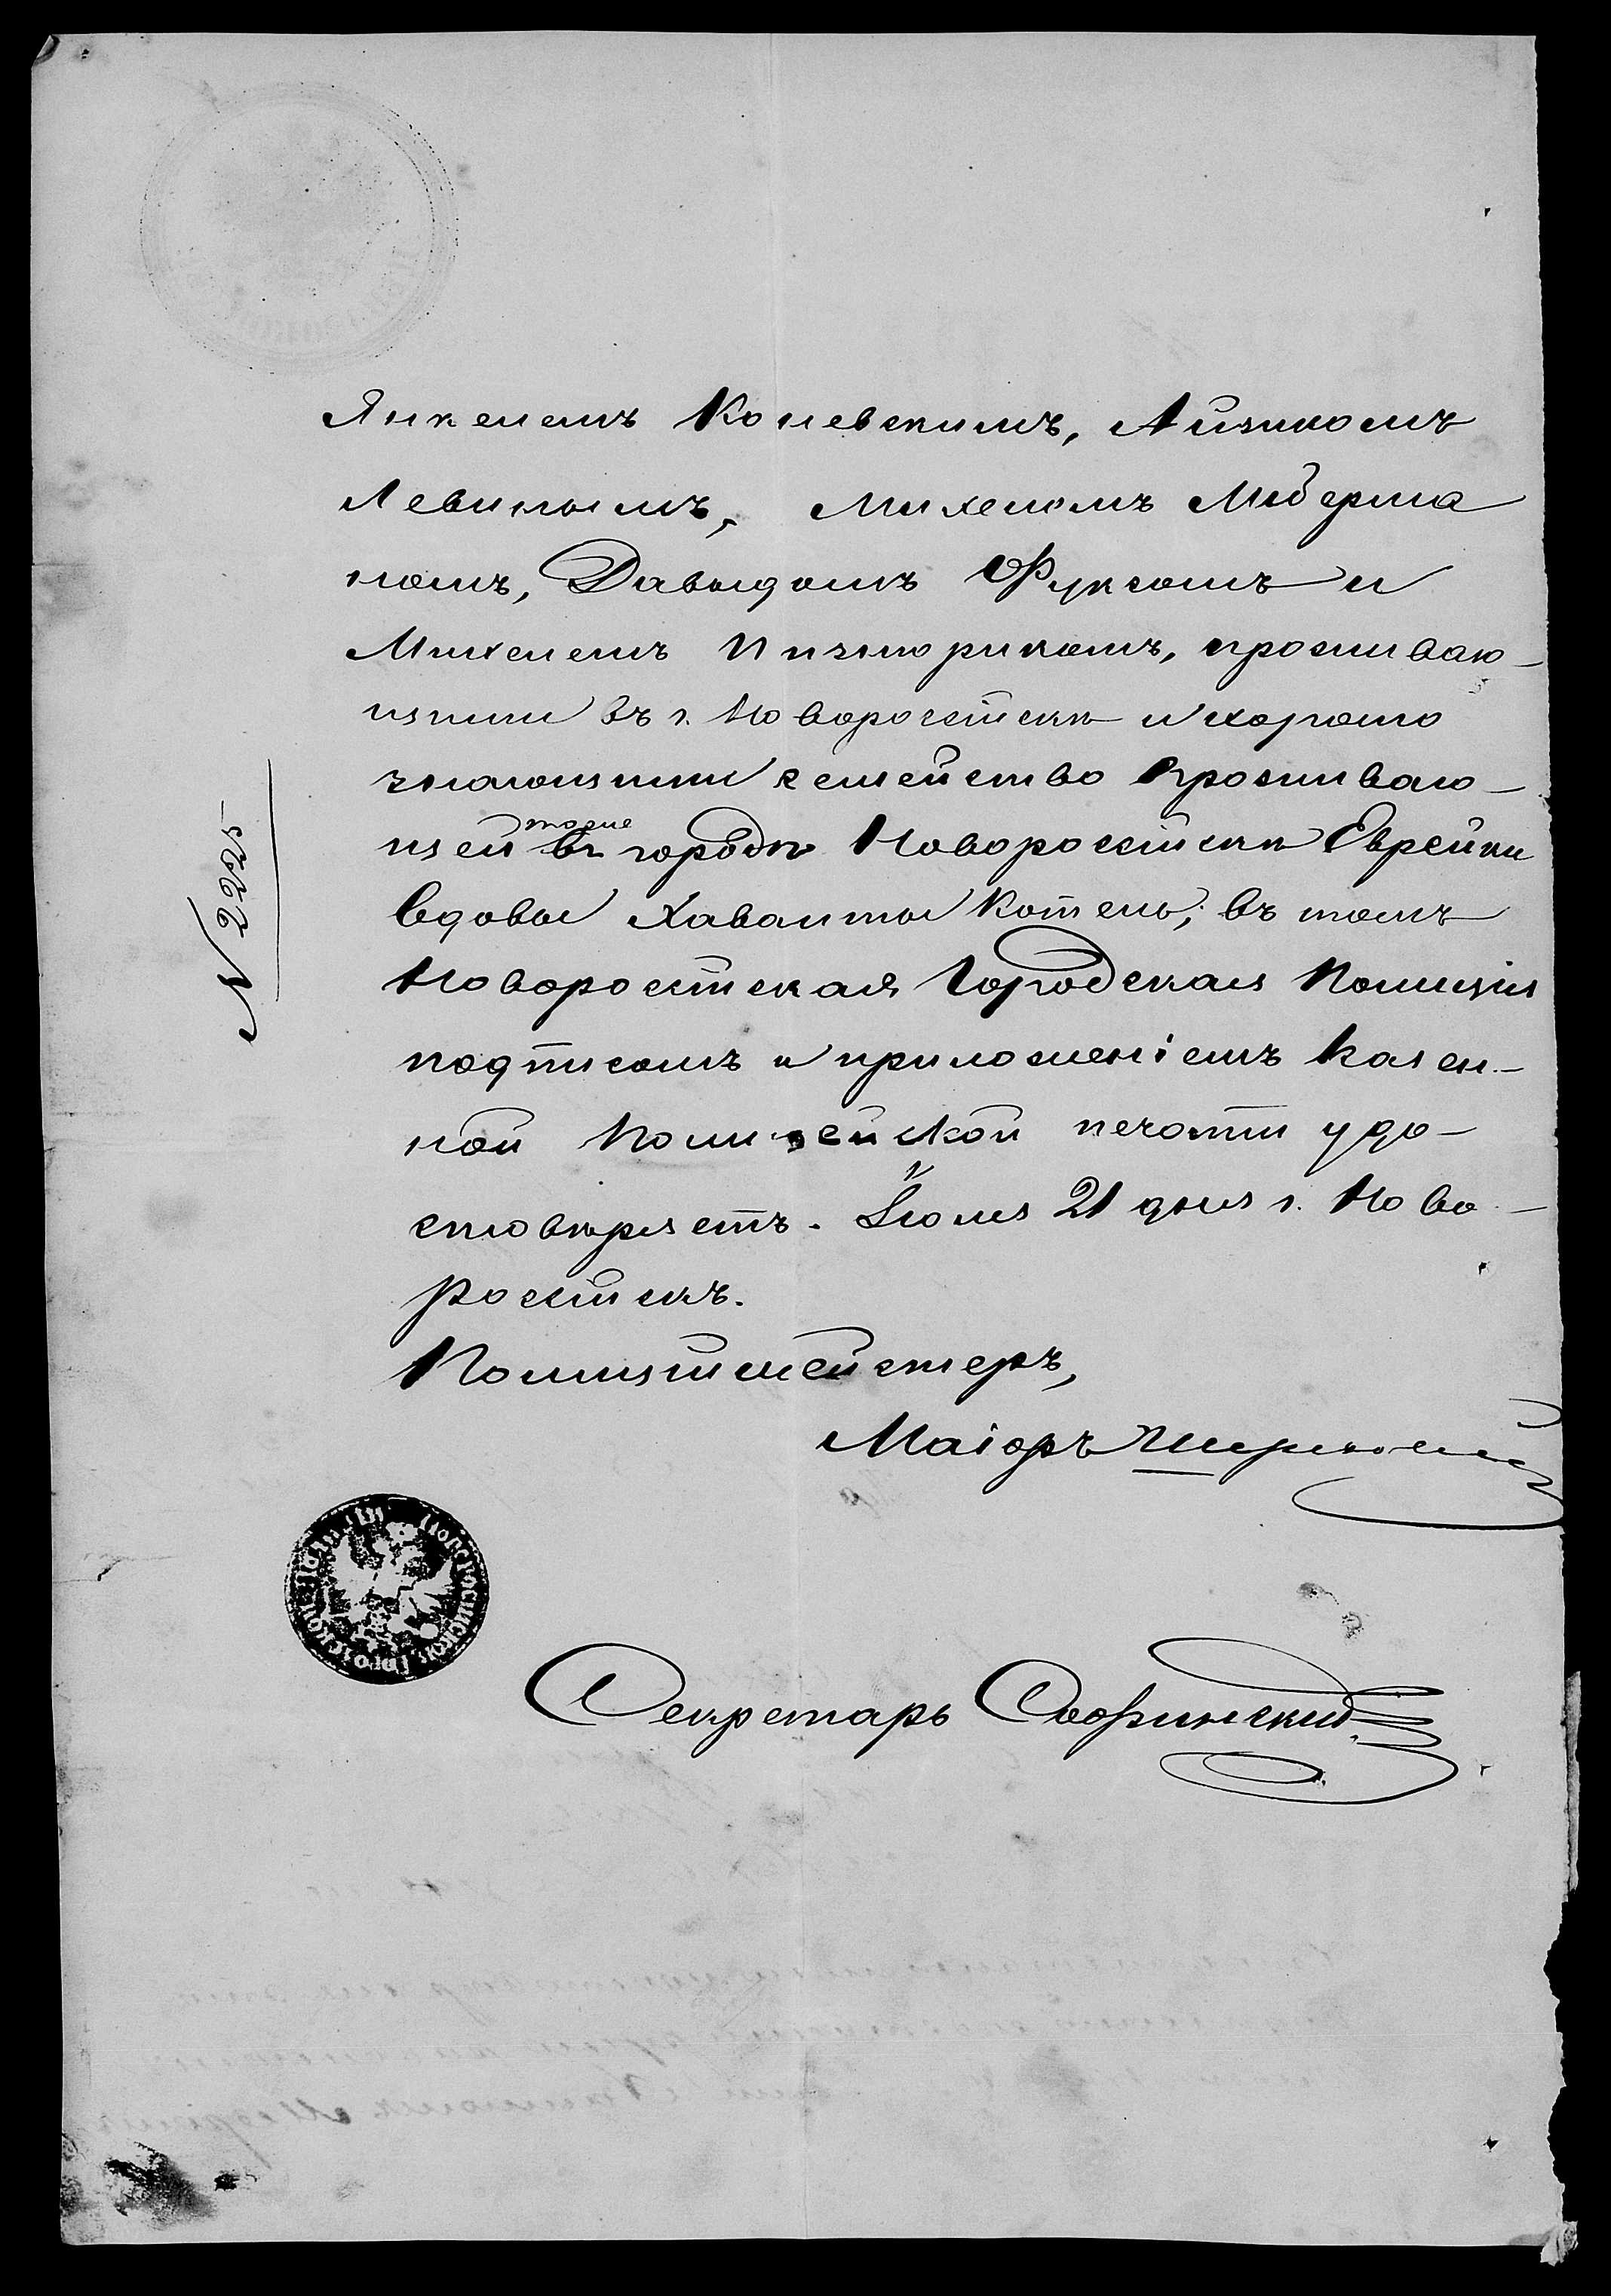 Янкелемъ Коневскимъ, Айзикомъ
Левинымъ, Михелемъ Либерма
номъ, Давыдомъ Фуксомъ и
Михелемъ Низгорикомъ, проживаю-
щими въ г. Новороссійскѣ и хорошо
знающими семейство проживаю-
щей тоже въ городѣ Новороссійскѣ Еврейки
вдовы Хаваиты Котель, въ томъ
Новороссійская Городская Полиція
подписомъ и приложеніемъ казен-
ной Полицейской печати удо-
стовѣряетъ. Іюля 21 дня г. Ново-
россійскъ.
Полиціймейстеръ,
Маіоръ
Секретарь Софинскій
N 2225